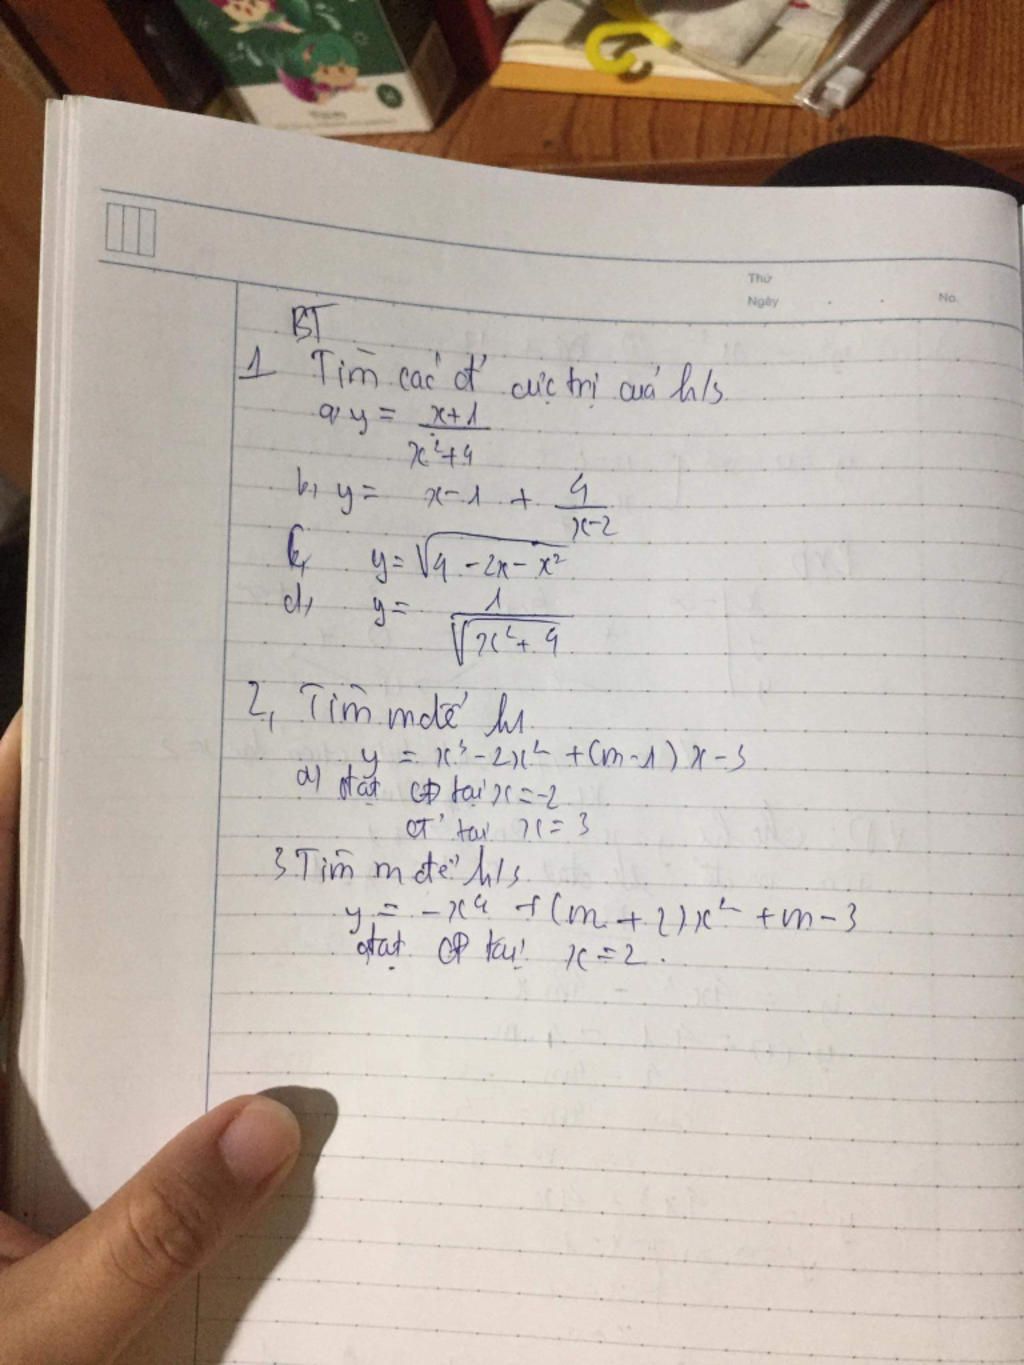 Thứ
Ngày . . No.
BT
1 Tìm các đ' cực trị cuả h/s
a, y = \frac{x+1}{x²+4}
b, y = x-1 + \frac{4}{x-2}
c, y = √(4 - 2x - x²)
d, y = \frac{1}{√(x²+4)}
2, Tìm m để hs
y = x³ - 2x² + (m-1) x - 3
a) đạt CĐ tại x = -2
CT tại x = 3
3 Tìm m để h/s
y = -x⁴ + (m + 2) x² + m - 3
đạt CĐ tại x = 2.